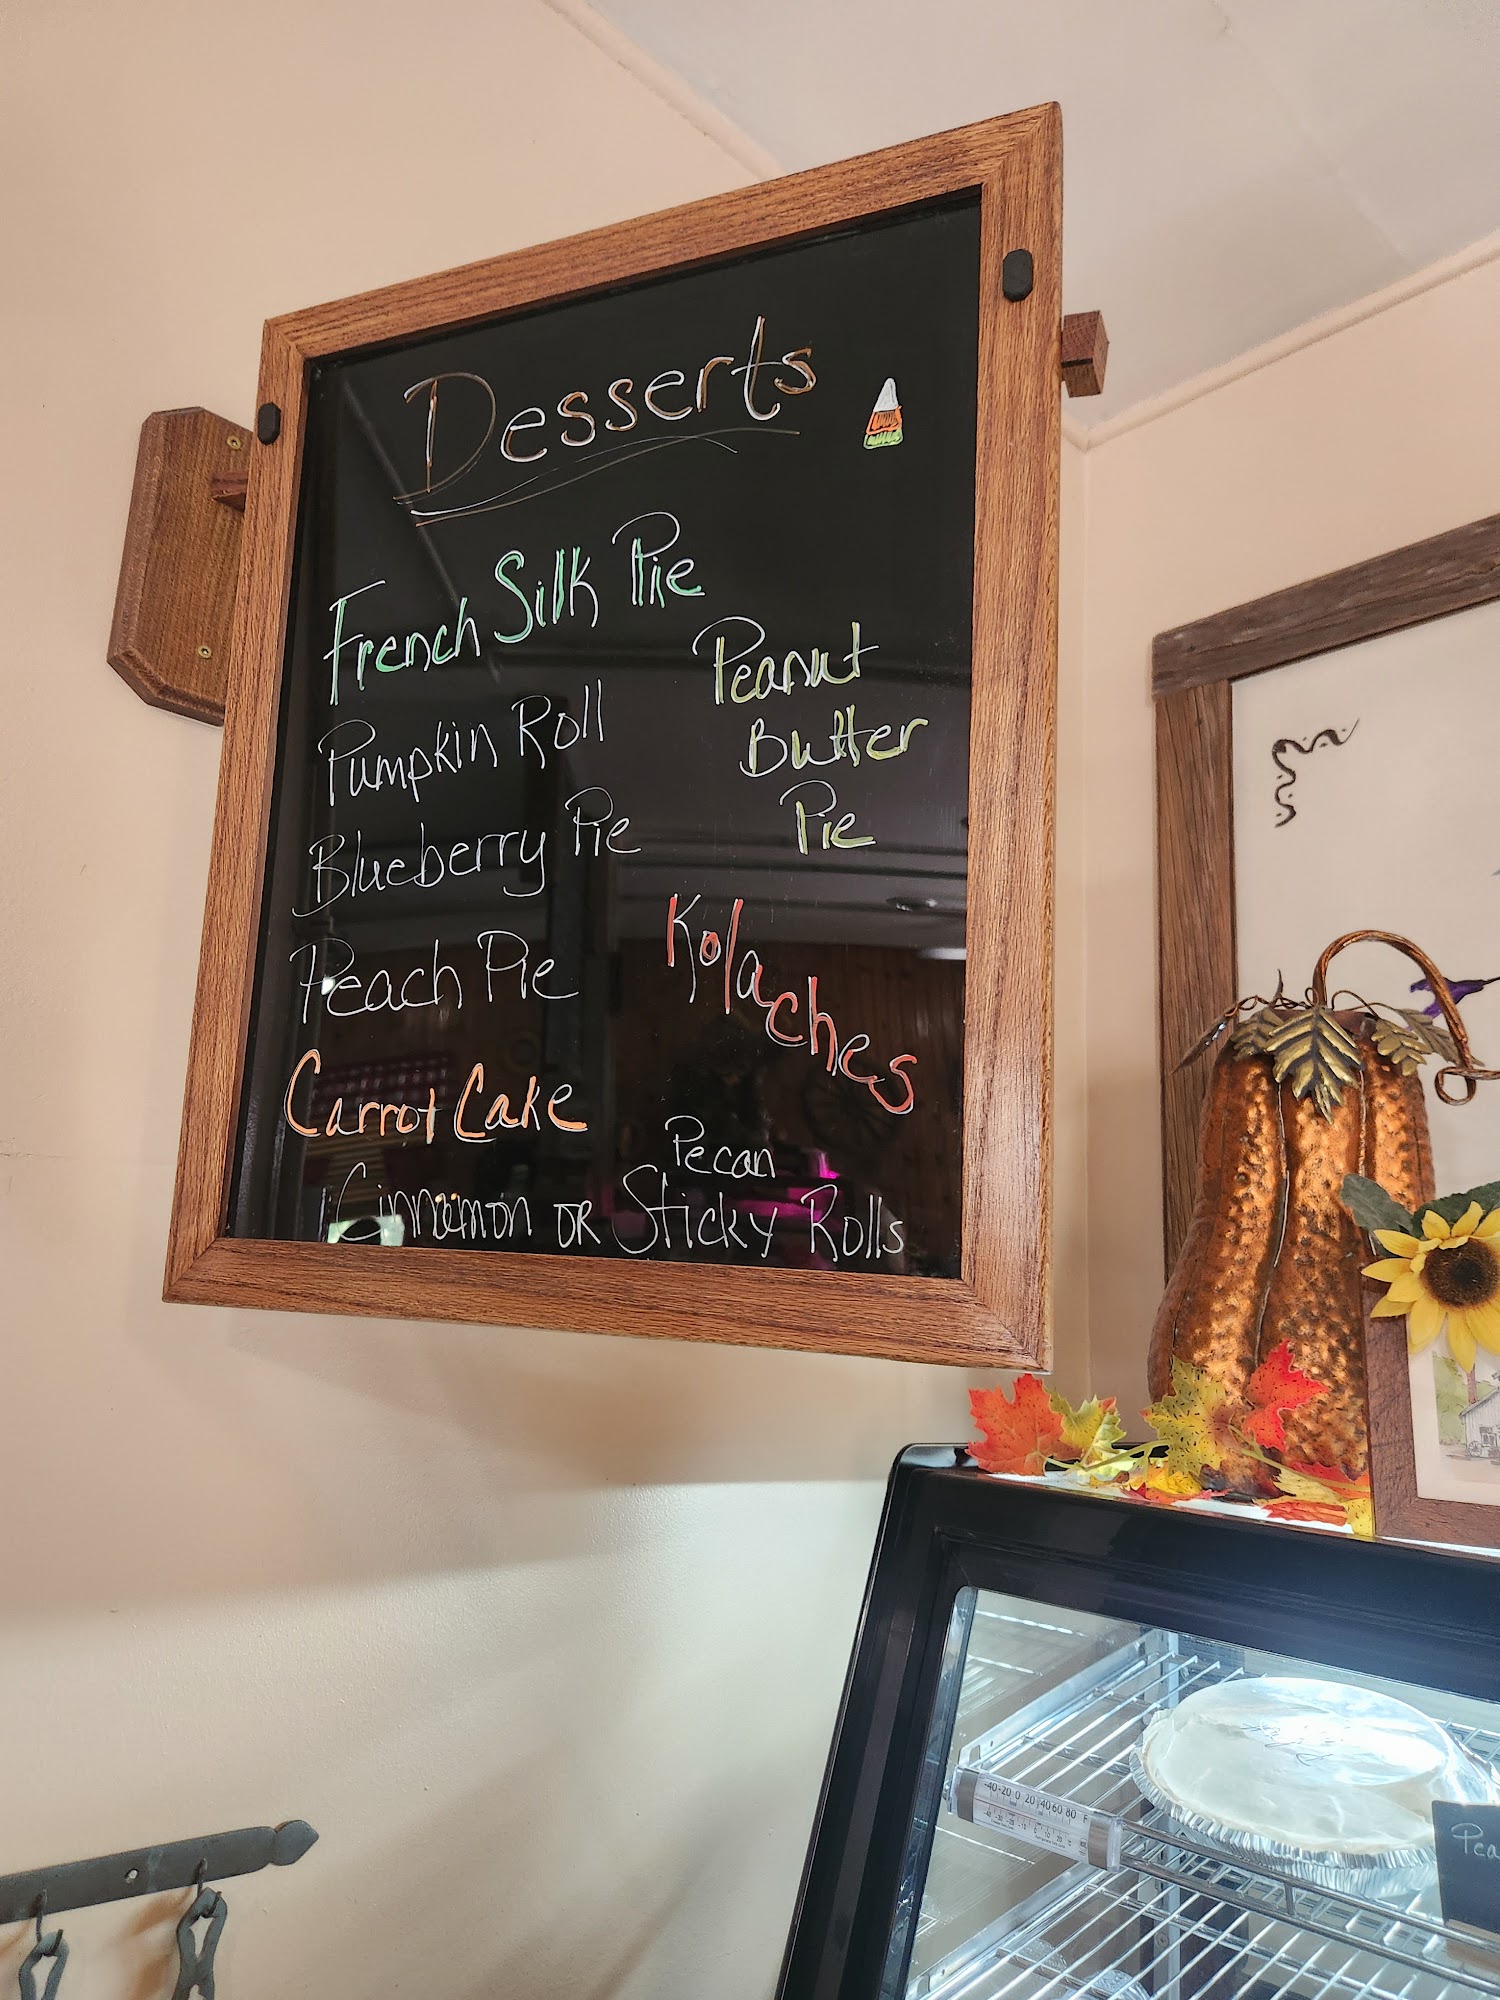 Desserts
French Silk Pie
Pumpkin Roll
Blueberry Pie
Peach Pie
Carrot Cake
Peanut
Butter
Pie
Kolaches
Pecan
Cinnamon OR Sticky Rolls
-40 -20 0 20 40 60 80 F
Pea